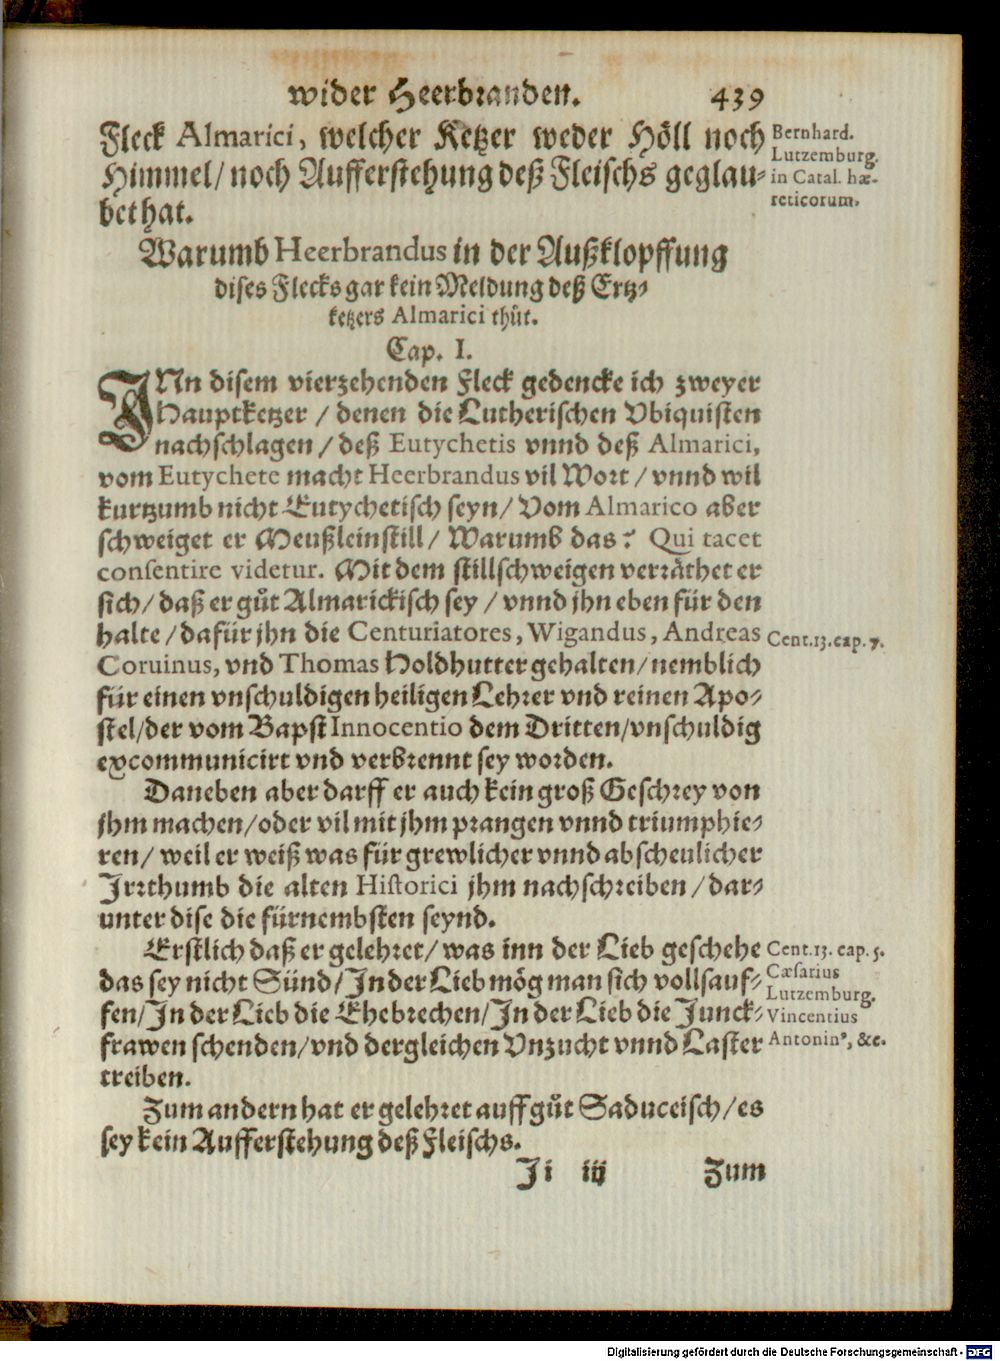 wider Heerbranden. 439
Fleck Almarici, welcher Ketzer weder Höll noch
Himmel/ noch Aufferstehung deß Fleischs geglau-
bet hat.
Bernhard.
Lutzemburg.
in Catal. hæ-
reticorum.
Warumb Heerbrandus in der Außklopffung
dises Flecks gar kein Meldung deß Ertz-
ketzers Almarici thůt.
Cap. I.
INn disem vierzehenden Fleck gedencke ich zweyer
Hauptketzer / denen die Lutherischen Vbiquisten
nachschlagen / deß Eutychetis vnnd deß Almarici,
vom Eutychete macht Heerbrandus vil Wort / vnnd wil
kurtzumb nicht Eutychetisch seyn/ Vom Almarico aber
schweiget er Meußleinstill/ Warumb das? Qui tacet
consentire videtur. Mit dem stillschweigen verräthet er
sich/ daß er gůt Almarickisch sey / vnnd jhn eben für den
halte/ dafür jhn die Centuriatores, Wigandus, Andreas
Coruinus, vnd Thomas Holdhutter gehalten/ nemblich
für einen vnschuldigen heiligen Lehrer vnd reinen Apo-
stel/der vom Bapst Innocentio dem Dritten/vnschuldig
excommunicirt vnd verbrennt sey worden.
Cent.13.cap.7.
Daneben aber darff er auch kein groß Geschrey von
jhm machen/oder vil mit jhm prangen vnnd triumphie-
ren/ weil er weiß was für grewlicher vnnd abscheulicher
Irrthumb die alten Historici jhm nachschreiben / dar-
unter dise die fürnembsten seynd.
Erstlich daß er gelehret/ was inn der Lieb geschehe
das sey nicht Sünd/ In der Lieb mög man sich vollsauf-
fen/In der Lieb die Ehebrechen/In der Lieb die Junck-
frawen schenden/vnd dergleichen Vnzucht vnnd Laster
treiben.
Cent.13. cap.5.
Cæsarius
Lutzemburg.
Vincentius
Antonin9, &c.
Zum andern hat er gelehret auff gůt Saduceisch/es
sey kein Aufferstehung deß Fleischs.
Ii iij Zum
Digitalisierung gefördert durch die Deutsche Forschungsgemeinschaft - DFG